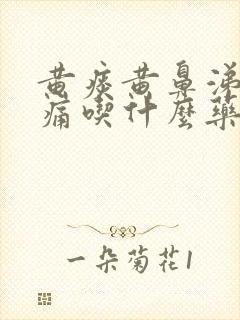 黄痰黄鼻涕
痛喫什麼藥
一朵菊花1